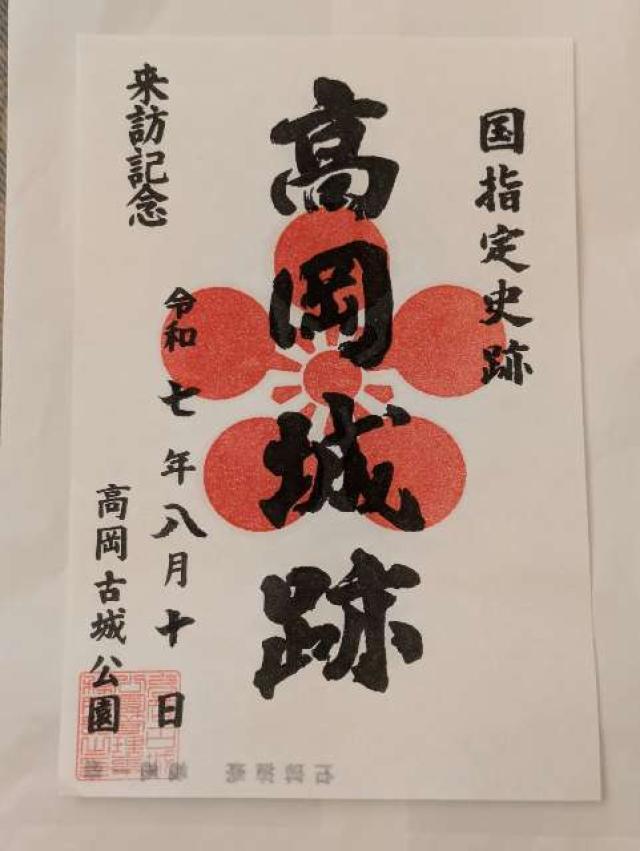 国指定史跡
高岡城跡
来訪記念
令和七年八月十日
高岡古城公園